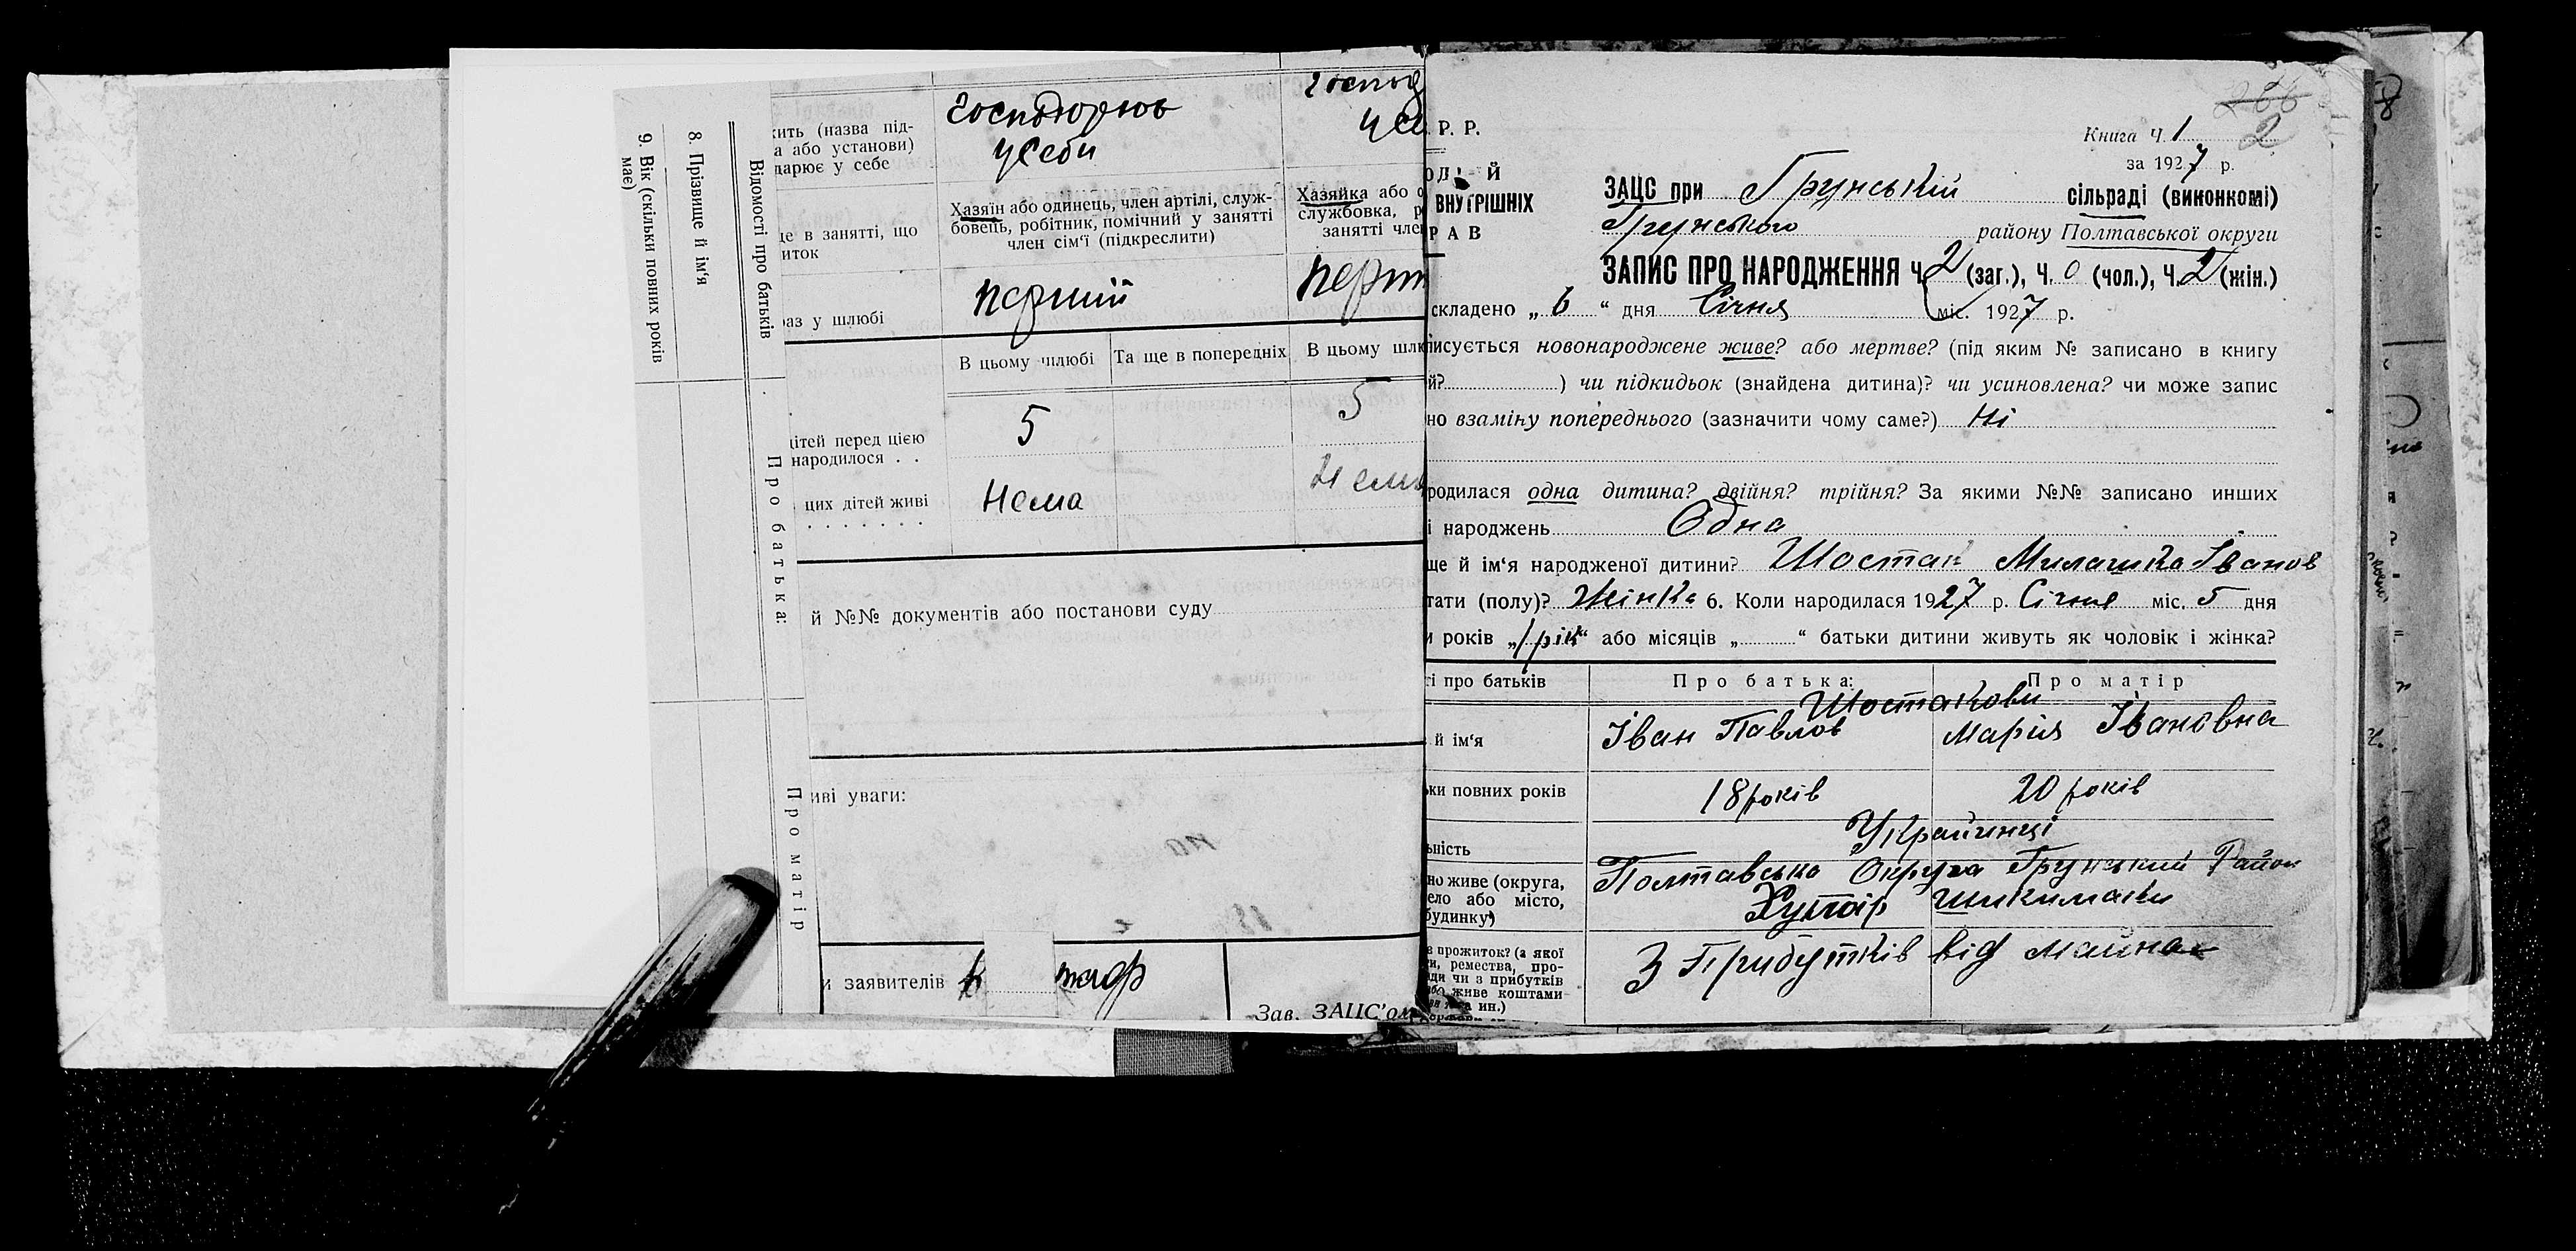 9. Вік (скільки повних років
має)
8. Прізвище й ім'я
Відомості про батьків
Про батька:
Про матір
ить (назва під-
а або установи)
дарює у себе
Господорюю
усеби
Господ
усе
це в занятті, що
иток
Хазяїн або одинець, член артілі, служ-
бовець, робітник, помічний у занятті
член сім'ї (підкреслити)
Хазяйка або о
службовка, р
занятті чле
раз у шлюбі
перший
перш
В цьому шлюбі
Та ще в попередніх
В цьому шлю
ітей перед цією
народилося . .
5
5
цих дітей живі
. . . . . . .
Нема
Нема
й №№ документів або постанови суду
иві уваги:
и заявителів
Зав. ЗАЦС'ом
266
Р. Р.
Книга Ч 1
2
за 1927 р.
Й
ВНУТРІШНІХ
РАВ
ЗАЦС при Грунській сільраді (виконкомі)
Грунського району Полтавської округи
ЗАПИС ПРО НАРОДЖЕННЯ Ч. 2 (заг.), Ч. 0 (чол.), Ч. 2 (жін.)
складено „ 6 “ дня Січня міс. 1927 р.
писується новонароджене живе? або мертве? (під яким № записано в книгу
й? ) чи підкидьок (знайдена дитина)? чи усиновлена? чи може запис
но взаміну попереднього (зазначити чому саме?) Ні
родилася одна дитина? двійня? трійня? За якими №№ записано инших
і народжень Одна
ще й ім'я народженої дитини? Шостак Милашка Іванов
тати (полу)? Жінка 6. Коли народилася 1927 р. Січня міс. 5 дня
и років „1 рік“ або місяців „ “ батьки дитини живуть як чоловік і жінка?
і про батьків
Про батька:
Про матір
Шостакови
й ім'я
Іван Павлов
Мария Івановна
ки повних років
18 років
20 років
ьність
Украйинці
но живе (округа,
ело або місто,
будинку)
Полтавська Округа Грунський Район
Хутір Шикимаки
в прожиток? (з якої
и, ремества, про-
ади чи з прибутків
або живе коштами
ин.)
З Прибутків від майна